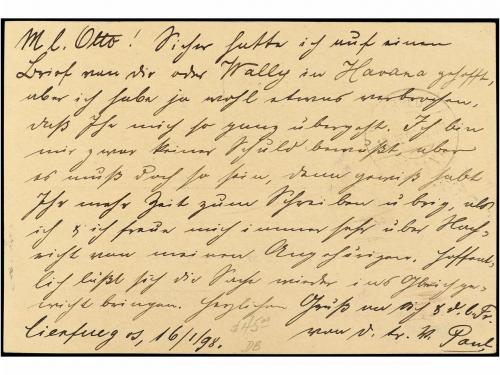 M l. Otto! Sicher hatte ich auf einen
Brief von Dir oder Wally in Havana gehofft,
aber ich habe ja wohl etwas verbrochen,
daß Ihr mich so ganz übergeht. Ich bin
mir zwar keiner Schuld bewußt, aber
es muß doch so sein, denn gewiß habt
Ihr mehr Zeit zum Schreiben übrig, als
ich & ich freue mich immer sehr über Nach-
richt von meinen Angehörigen. Hoffent-
lich läßt sich die Sache wieder ins Gleichge-
wicht bringen. Herzlichen Gruß an Dich & d. l. Fr.
Cienfuegos, 16/1/98. von d. tr. V. Paul
DB